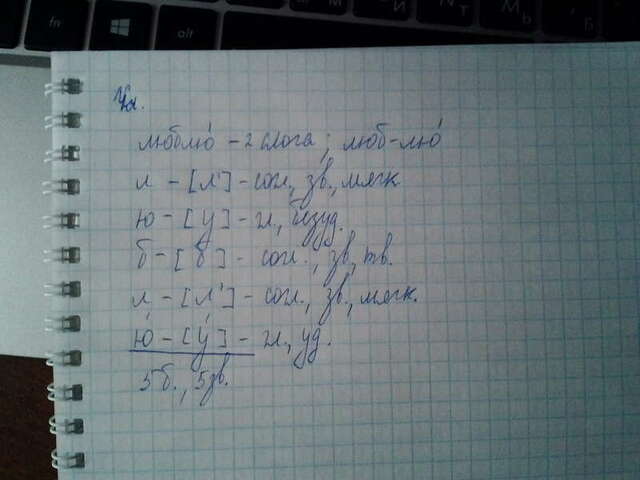 fn
alt
люблю́ - 2 слога; люб-лю́
л - [л'] - согл., зв., мягк
ю - [у] - гл., безуд.
б - [б] - согл., зв., тв.
л - [л'] - согл., зв., мягк.
ю́ - [у́] - гл., уд.
5 б., 5 зв.